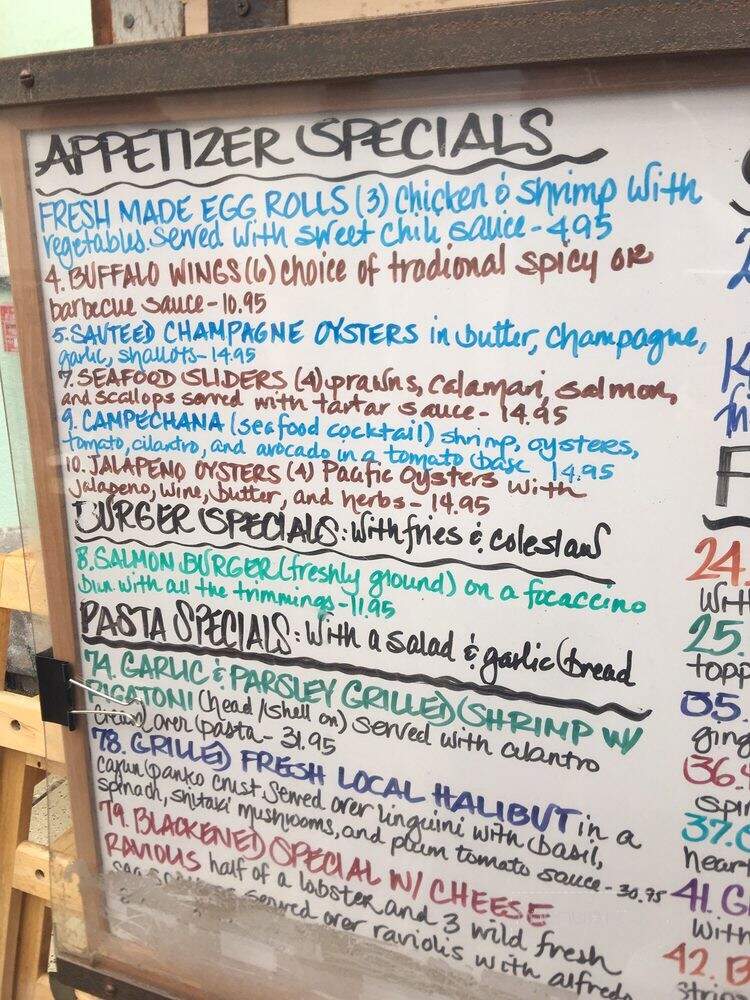 APPETIZER SPECIALS
FRESH MADE EGG ROLLS (3) chicken & shrimp with
vegetables. served with sweet chili sauce - 4.95
4. BUFFALO WINGS (6) choice of tradional spicy or
barbecue sauce - 10.95
5. SAUTEED CHAMPAGNE OYSTERS in butter, champagne,
garlic, shallots - 14.95
7. SEAFOOD SLIDERS (4) prawns, calamari, salmon,
and scallops served with tartar sauce - 14.95
9. CAMPECHANA (seafood cocktail) shrimp, oysters,
tomato, cilantro, and avocado in a tomato base 14.95
10. JALAPENO OYSTERS (4) Pacific Oysters with
jalapeno, wine, butter, and herbs - 14.95
BURGER SPECIALS: with fries & coleslaw
8. SALMON BURGER (freshly ground) on a focaccino
bun with all the trimmings - 11.95
PASTA SPECIALS: with a salad & garlic bread
74. GARLIC & PARSLEY GRILLED SHRIMP W/
RIGATONI (head/shell on) served with cilantro
cream over pasta - 31.95
78. GRILLED FRESH LOCAL HALIBUT in a
cajun panko crust served over linguini with basil,
spinach, shitaki mushrooms, and plum tomato sauce - 30.95
79. BLACKENED SPECIAL W/ CHEESE
RAVIOLIS half of a lobster and 3 wild fresh
served over raviolis with alfredo
24.
With
25.
topp
35.
ging
36.
spin
37.
heart
41. G
with
42. B
strip